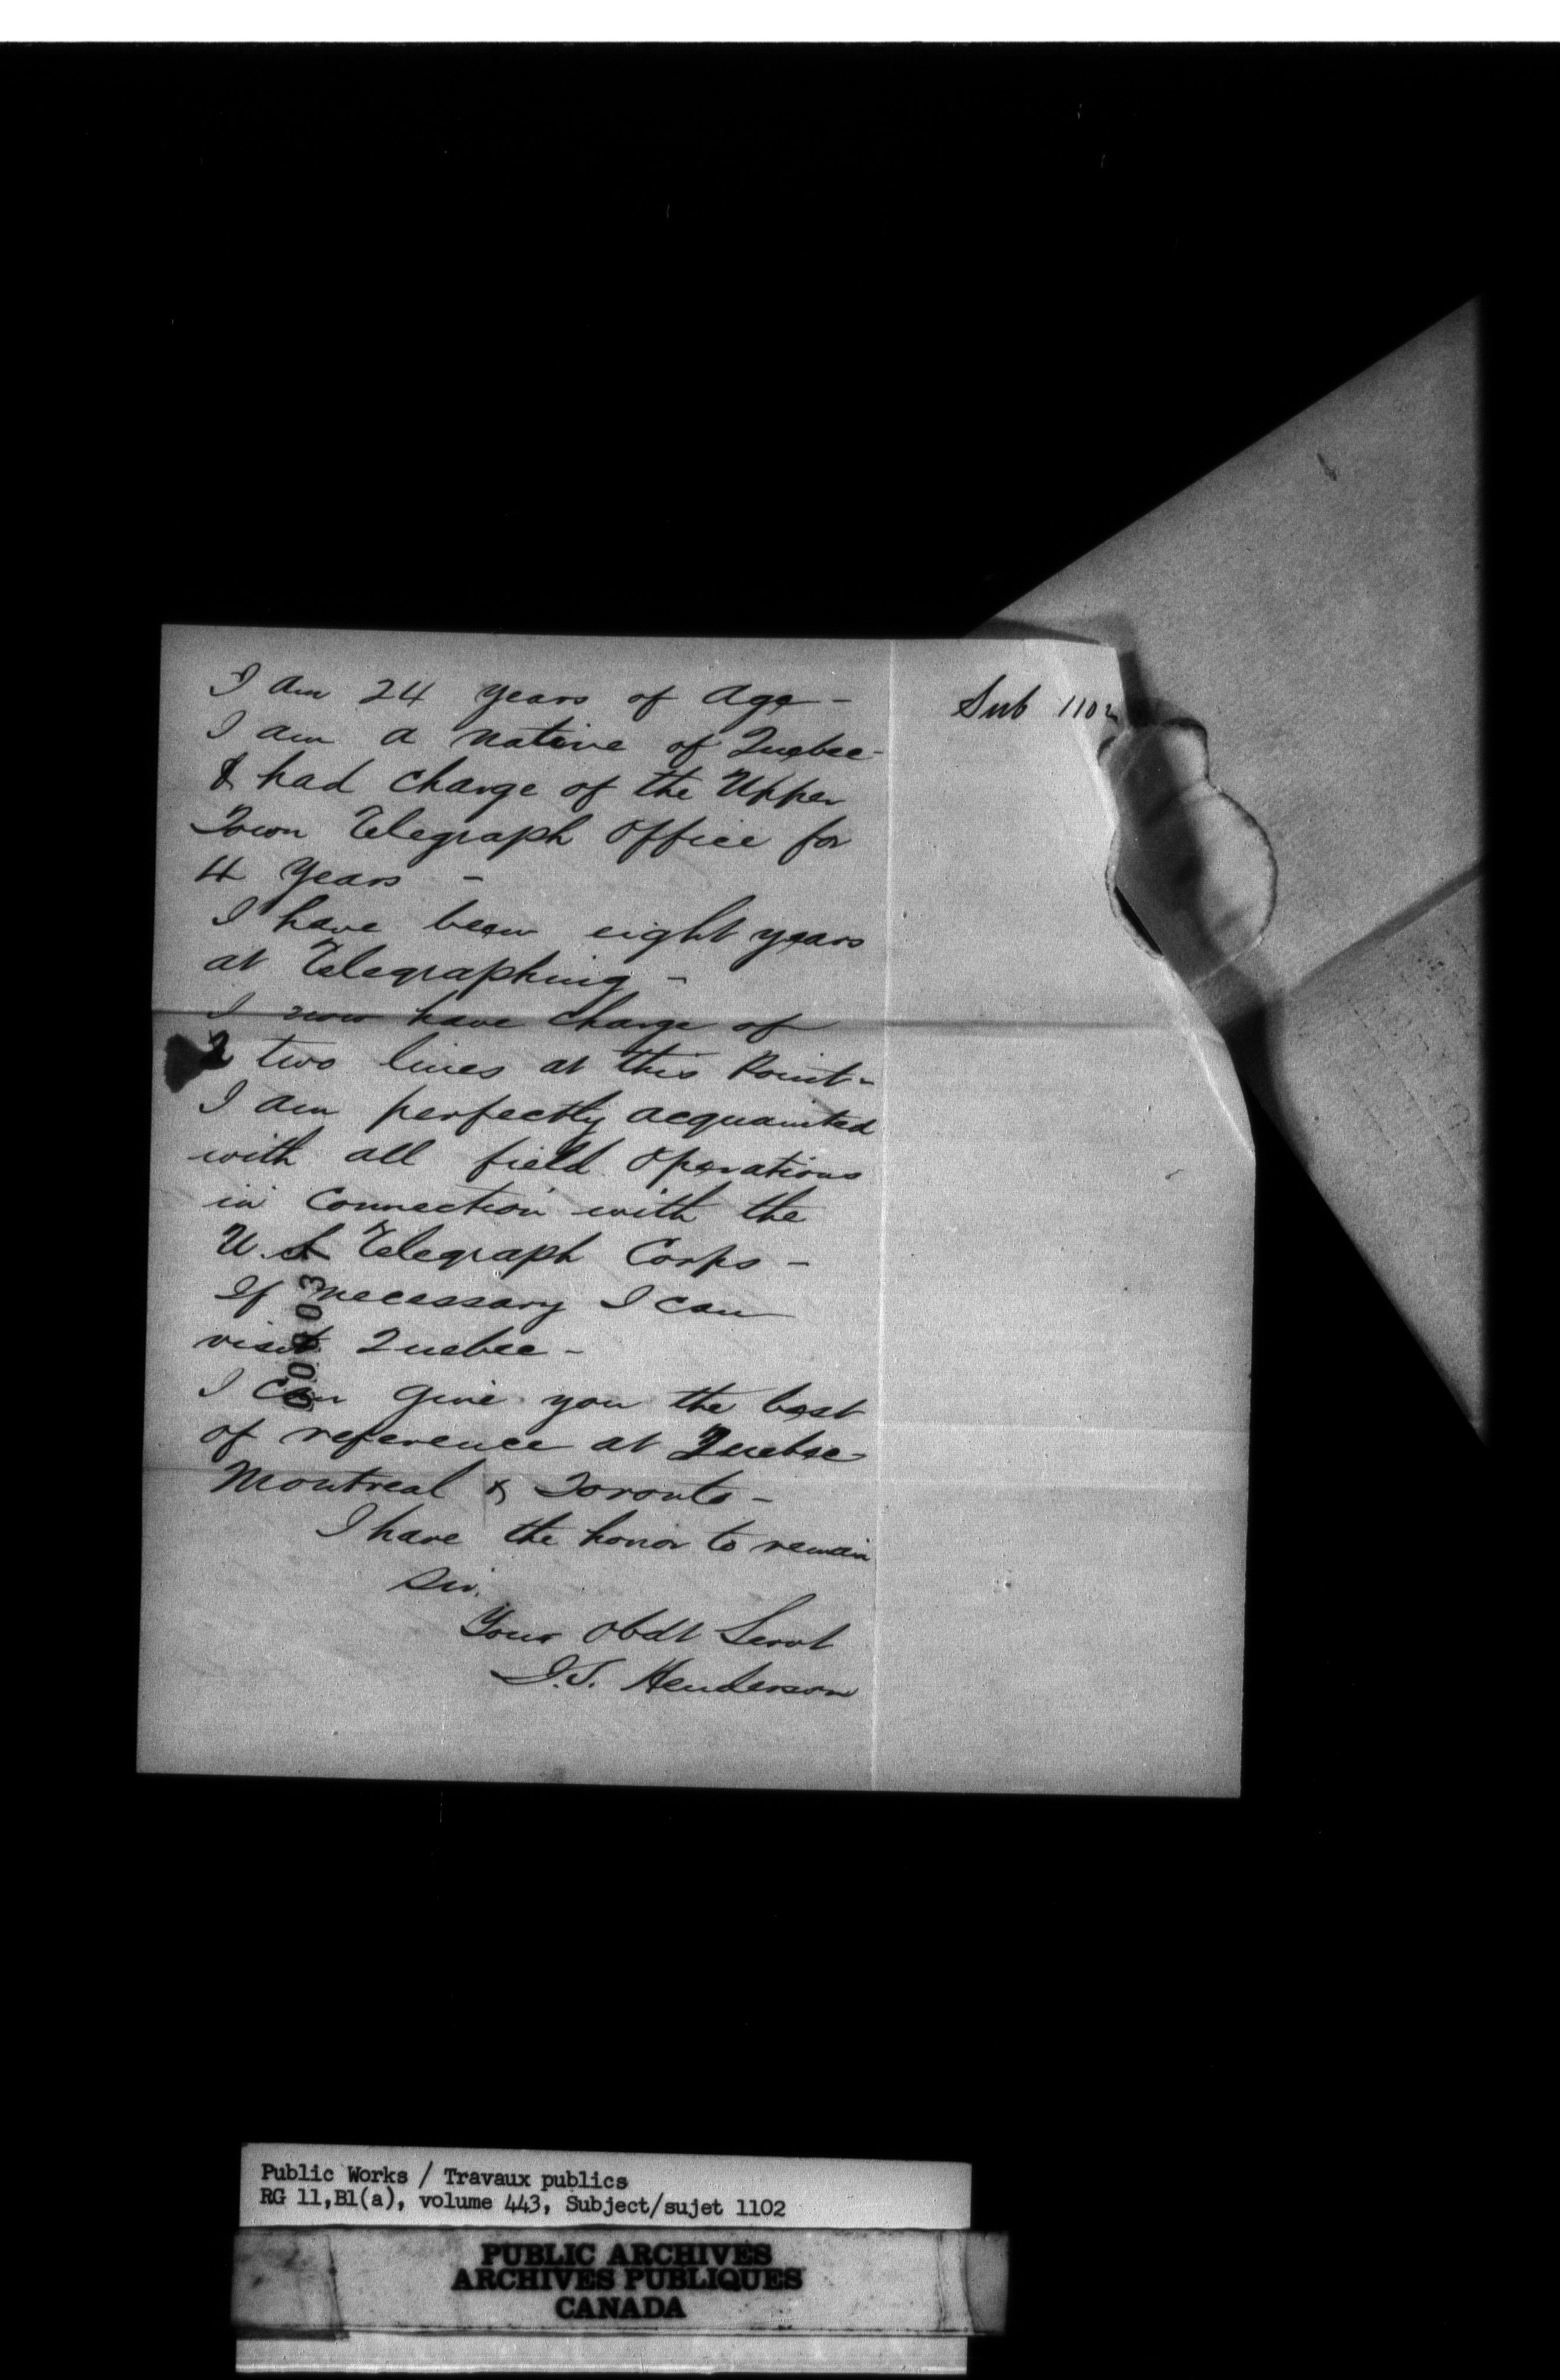 I am 24 years of Age -
I am a native of Quebec -
& had charge of the Upper
Town Telegraph Office for
4 years -
I have been eight years
at Telegraphing -
I now have charge of
two lines at this Point -
I am perfectly acquainted
with all field operations
in connection with the
U.S Telegraph Corps -
If necessary I can
visit Quebec -
I can give you the best
of reference at Quebec
Montreal & Toronto -
I have the honor to remain
Sir.
Your Obdt Servt
Henderson
Sub 1102
Public Works / Travaux publics
RG 11,B1(a), volume 443, Subject/sujet 1102
PUBLIC ARCHIVES
ARCHIVES PUBLIQUES
CANADA